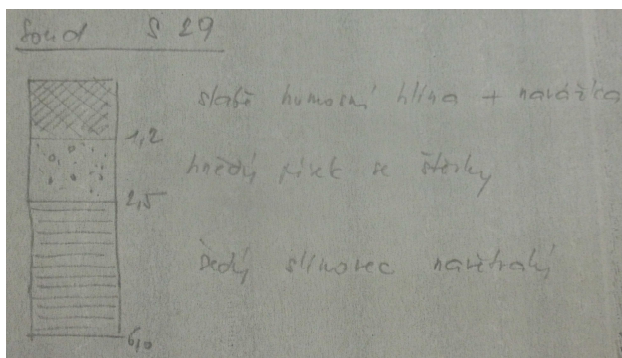 Sond S 29
slabě humosní hlína + navážka
1,2
hnědý písek se štěrky
2,5
šedý slínovec navětralý
6,0